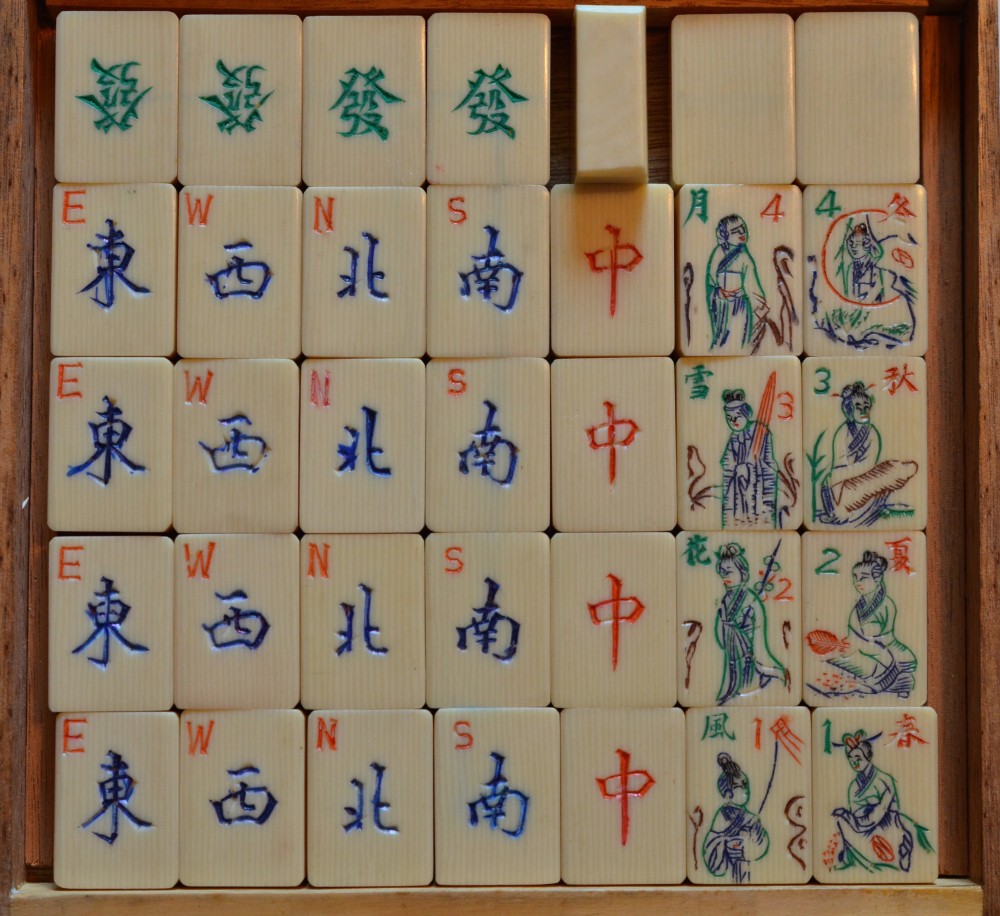 發 發 發 發
E W N S 月 4 4 冬
東 西 北 南 中
E W N S 雪 3 3 秋
東 西 北 南 中
E W N S 花 2 2 夏
東 西 北 南 中
E W N S 風 1 1 春
東 西 北 南 中